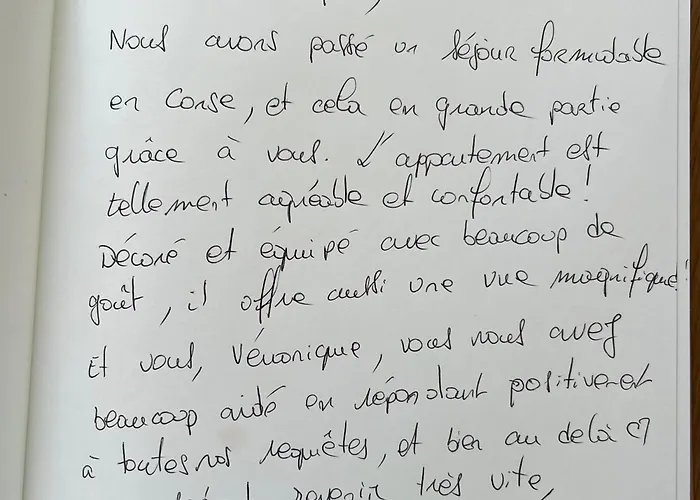 Nous avons passé un séjour formidable
en Corse, et cela en grande partie
grâce à vous. L'appartement est
tellement agréable et confortable !
Décoré et équipé avec beaucoup de
goût, il offre aussi une vue magnifique !
Et vous, Véronique, vous nous avez
beaucoup aidé en répondant positivement
à toutes nos requêtes, et bien au delà ♡
revenir très vite,